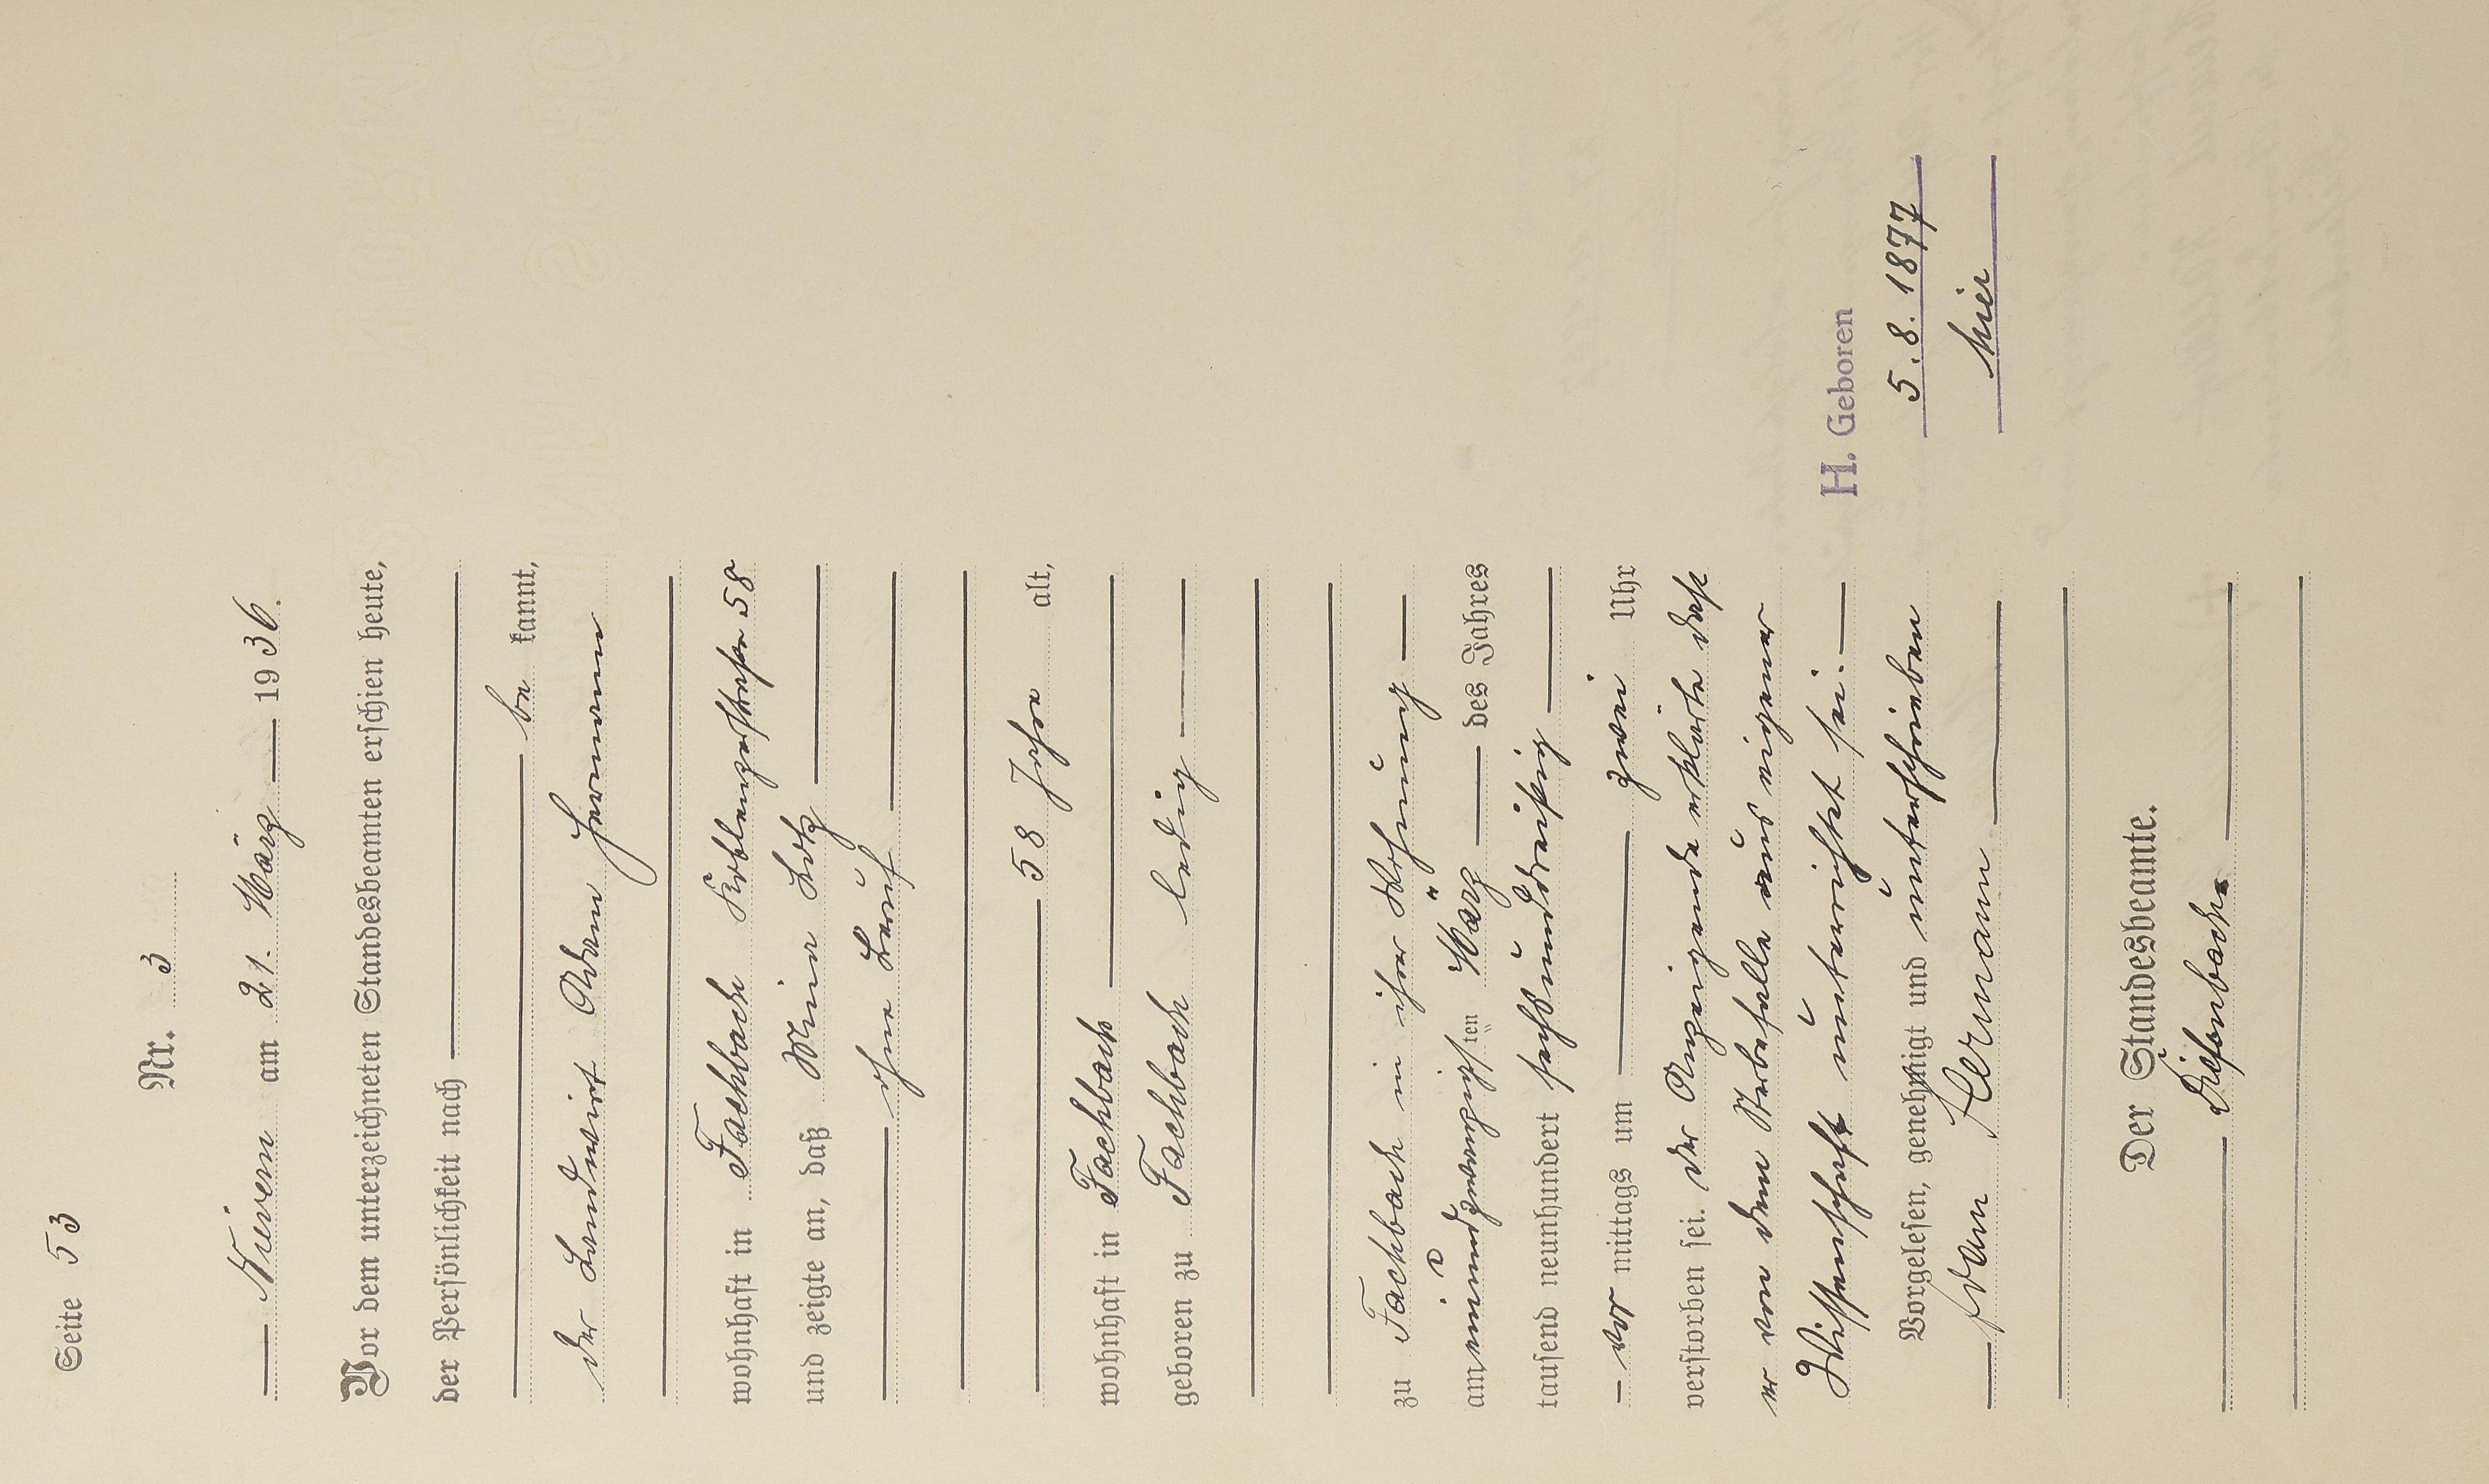 Seite 53
Nr. 3
Nievern am 21. März 1936.
Vor dem unterzeichneten Standesbeamten erschien heute,
der Persönlichkeit nach
be kannt,
der Landwirt Adam Hermann
wohnhaft in Fachbach Koblenzerstraße 58
und zeigte an, daß Mina Lotz
ohne Beruf
58 Jahre alt,
wohnhaft in Fachbach
geboren zu Fachbach ledig
zu Fachbach in ihrer Wohnung
am einundzwanzigsten März des Jahres
tausend neunhundert sechsunddreißig
vor mittags um zwei Uhr
verstorben sei. Der Anzeigende erklärte daß
er von dem Sterbefalle aus eigener
Wissenschaft unterrichtet sei.
Vorgelesen, genehmigt und unterschrieben
Adam Hermann
Der Standesbeamte.
H. Geboren
5.8.1877
hier